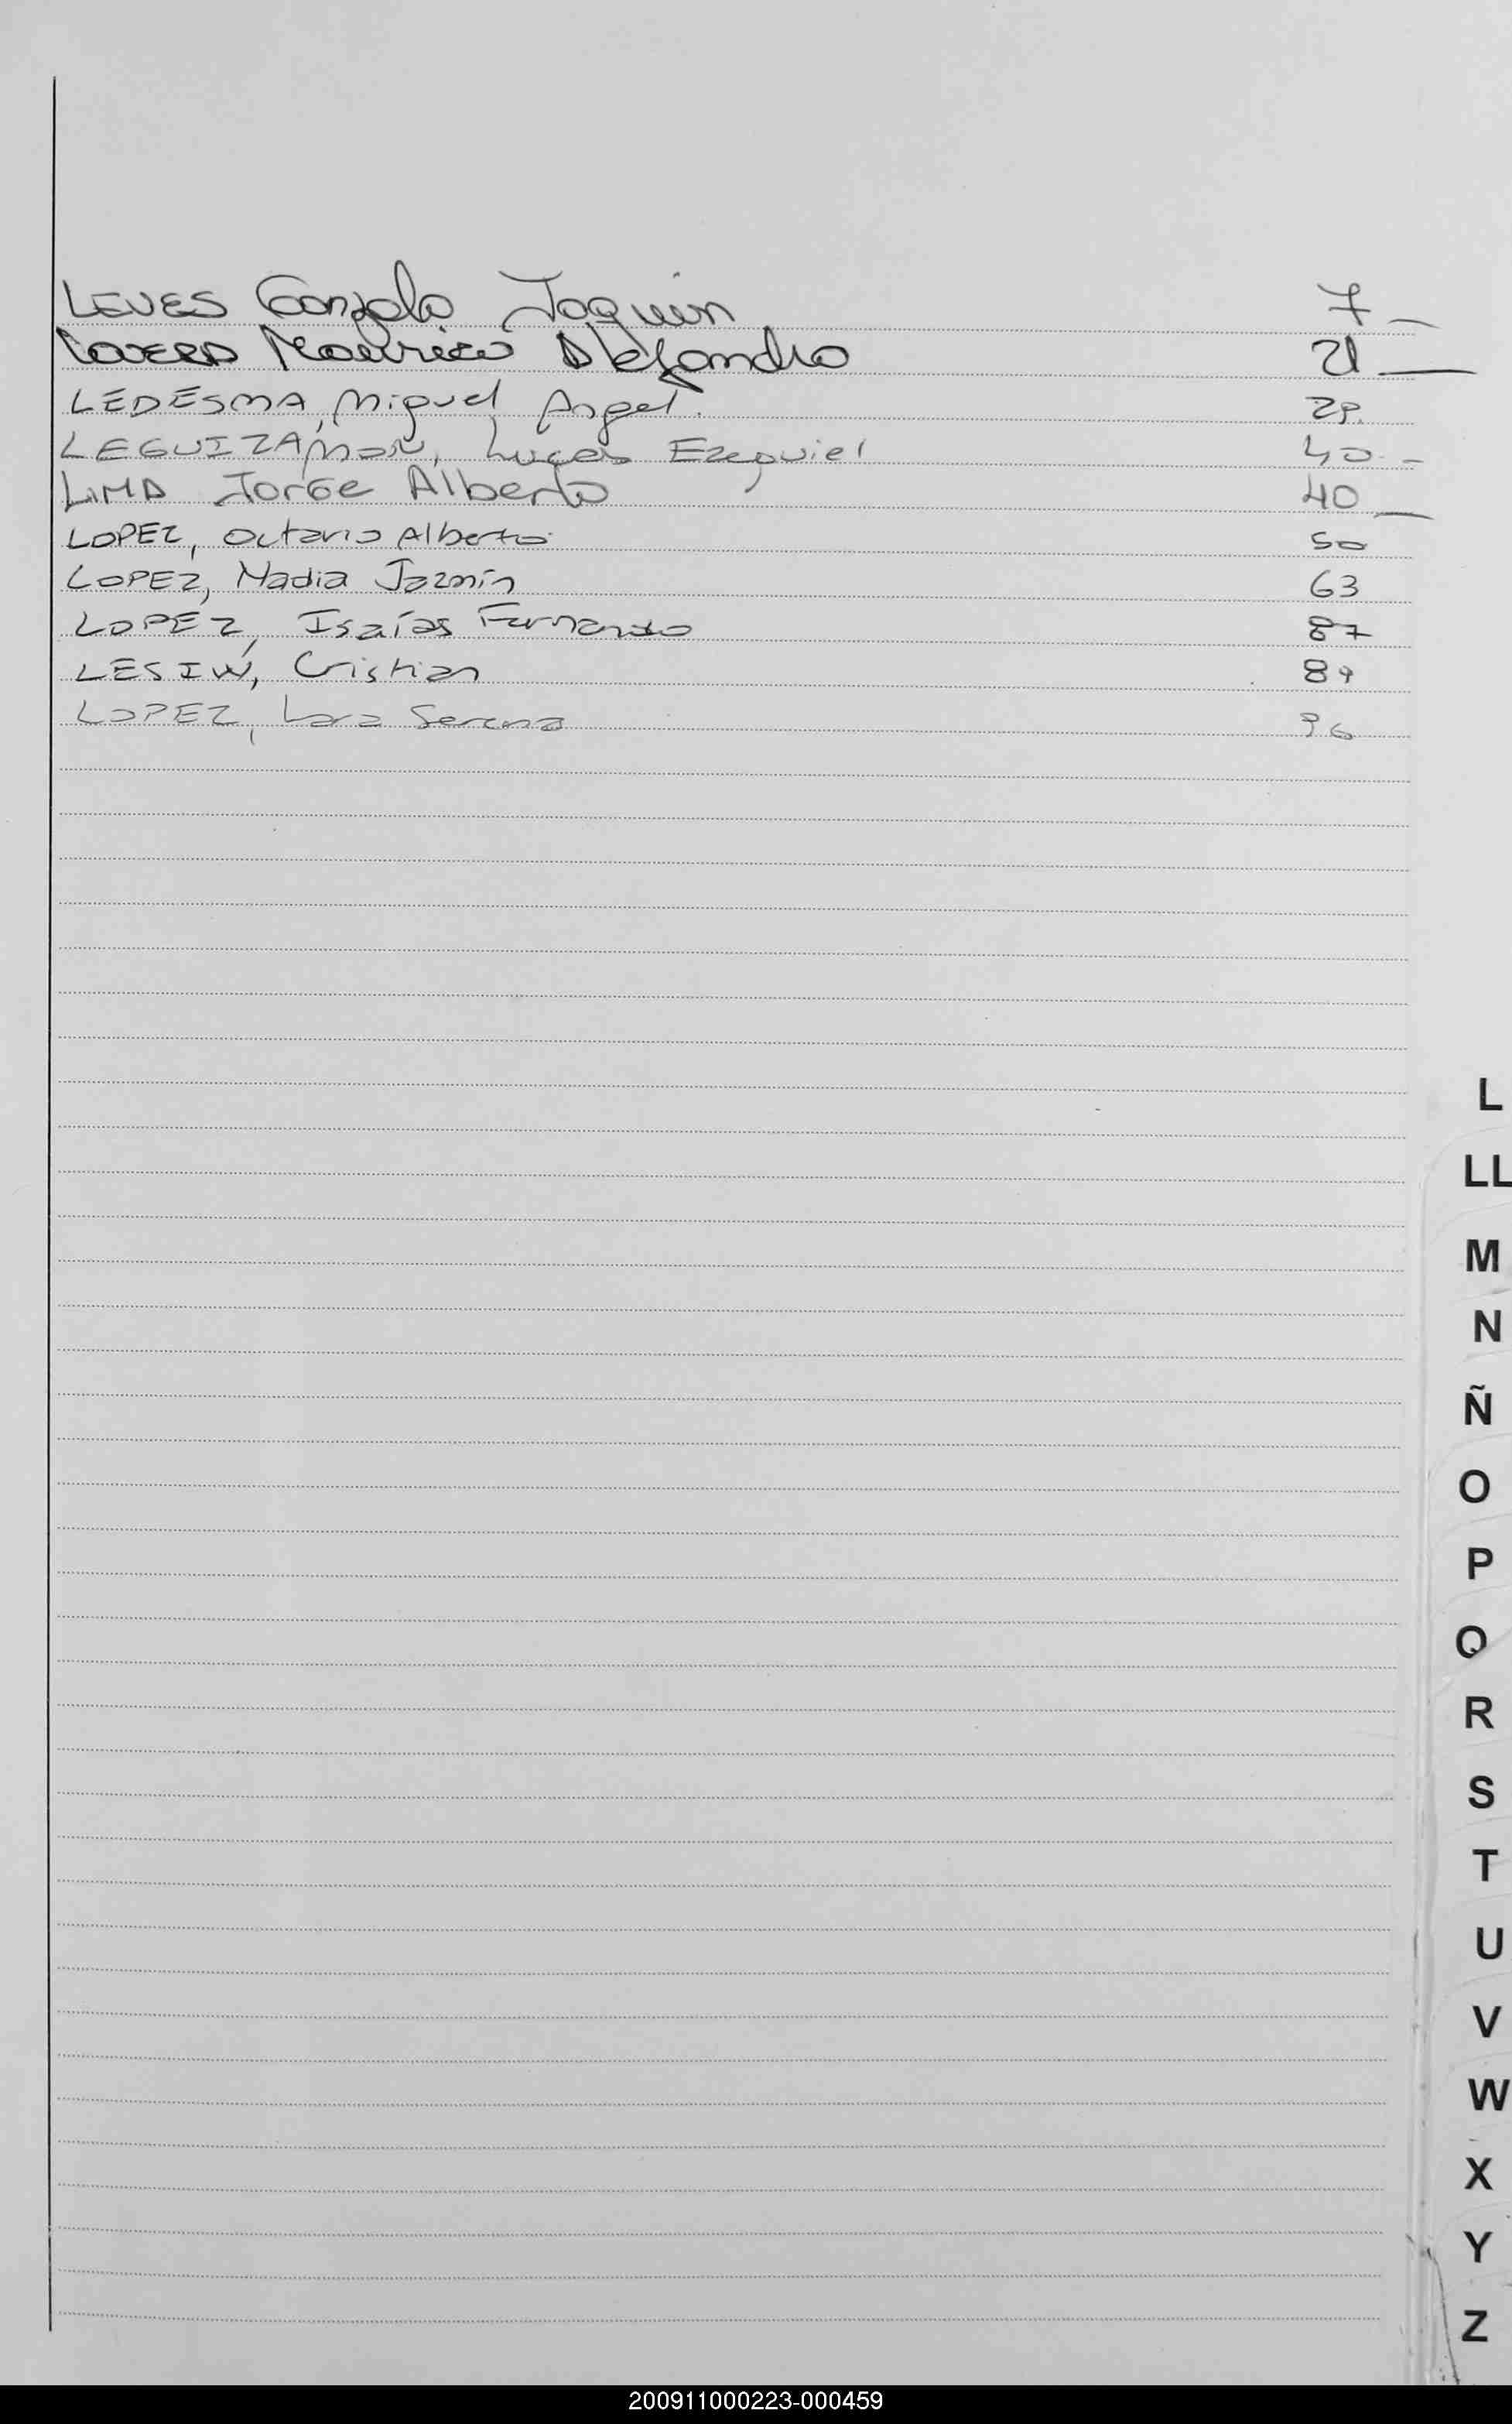 LEUES Gonzalo Joaquin 7
Mauricio Alejandro 21
LEDESMA, Miguel Angel. 29.
LEGUIZAMON, Lucas Ezequiel 40
LIMA Jorge Alberto 40
LOPEZ, Octavio Alberto 50
LOPEZ, Nadia Jazmín 63
LOPEZ, Isaías Fernando 87
LESIW, Cristian 89
LOPEZ, Lara Serena 96
L
LL
M
N
Ñ
O
P
Q
R
S
T
U
V
W
X
Y
Z
200911000223-000459